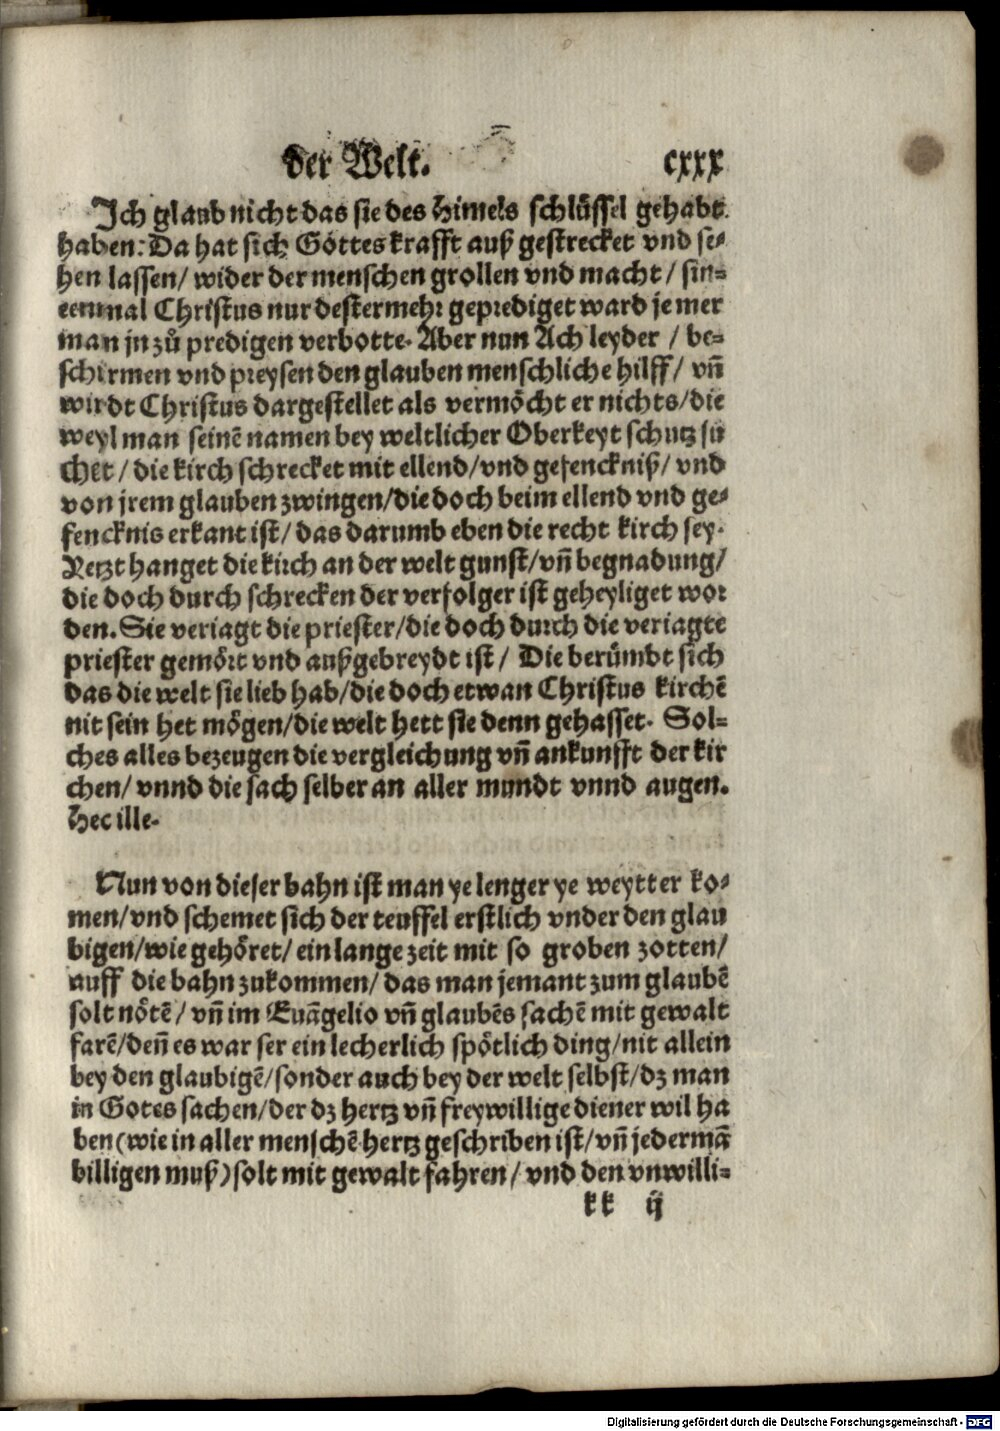 der Welt. cxxx
Ich glaub nicht das sie des himels schlüssel gehabt
haben: Da hat sich Göttes krafft auß gestrecket vnd se-
hen lassen / wider der menschen grollen vnd macht / sin-
temmal Christus nur dester mehr geprediget ward je mer
man jn zů predigen verbotte. Aber nun Ach leyder / be-
schirmen vnd preysen den glauben menschliche hilff / vñ
wirdt Christus dargestellet als vermöcht er nichts / die
weyl man seinē namen bey weltlicher Oberkeyt schutz sů
chet / die kirch schrecket mit ellend / vnd gefenckniß / vnd
von jrem glauben zwingen / die doch beim ellend vnd ge-
fencknis erkant ist / das darumb eben die recht kirch sey.
Yetzt hanget die kirch an der welt gunst / vñ begnadung /
die doch durch schrecken der verfolger ist geheyliget wor
den. Sie veriagt die priester / die doch durch die veriagte
priester gemört vnd außgebreydt ist / Die berümbt sich
das die welt sie lieb hab / die doch etwan Christus kirchē
nit sein het mögen / die welt hett sie denn gehasset. Sol-
ches alles bezeugen die vergleichung vñ ankunfft der kir
chen / vnnd die sach selber an aller mundt vnnd augen.
Hec ille.
Nun von dieser bahn ist man ye lenger ye weytter ko-
men / vnd schemet sich der teuffel erstlich vnder den glau
bigen / wie gehöret / ein lange zeit mit so groben zotten /
auff die bahn zukommen / das man jemant zum glaubē
solt nötē / vñ im Euāgelio vñ glaubēs sachē mit gewalt
farē / deñ es war ser ein lecherlich spötlich ding / nit allein
bey den glaubigē / sonder auch bey der welt selbst / dz man
in Gotes sachen / der dz hertz vñ freywillige diener wil ha
ben (wie in aller menschē hertz geschriben ist / vñ jedermā
billigen muß) solt mit gewalt fahren / vnd den vnwilli-
kk ij
Digitalisierung gefördert durch die Deutsche Forschungsgemeinschaft - DFG